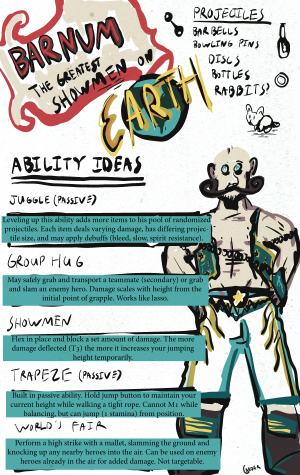 BARNUM
THE GREATEST
SHOWMEN ON
EARTH
PROJECTILES
BARBELLS
BOWLING PINS
DISCS
BOTTLES
RABBITS?
ABILITY IDEAS
JUGGLE (PASSIVE)
Leveling up this ability adds more items to his pool of randomized
projectiles. Each item deals varying damage, has differing projec-
tile size, and may apply debuffs (bleed, slow, spirit resistance).
GROUP HUG
May safely grab and transport a teammate (secondary) or grab
and slam an enemy hero. Damage scales with height from the
initial point of grapple. Works like lasso.
SHOWMEN
Flex in place and block a set amount of damage. The more
damage deflected (T3) the more it increases your jumping
height temporarily.
TRAPEZE (PASSIVE)
Built in passive ability. Hold jump button to maintain your
current height while walking a tight rope. Cannot M1 while
balancing, but can jump (1 stamina) from position.
WORLD'S FAIR
Perform a high strike with a mallet, slamming the ground and
knocking up any nearby heroes into the air. Can be used on enemy
heroes already in the air for added damage. Not targetable.